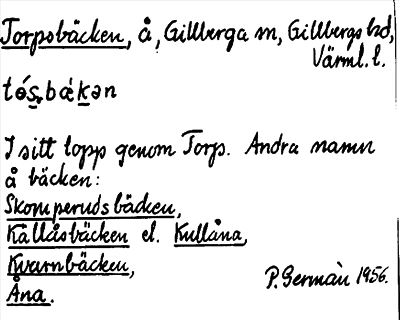 Torpsbäcken, å, Gillberga sn, Gillbergs hd,
Värml. l.
tó̱s̱.bä́ḵən
I sitt lopp genom Torp. Andra namn
å bäcken:
Skomperudsbäcken,
Kållåsbäcken el. Kullåna,
Kvarnbäcken,
Åna.
P. Germain 1956.